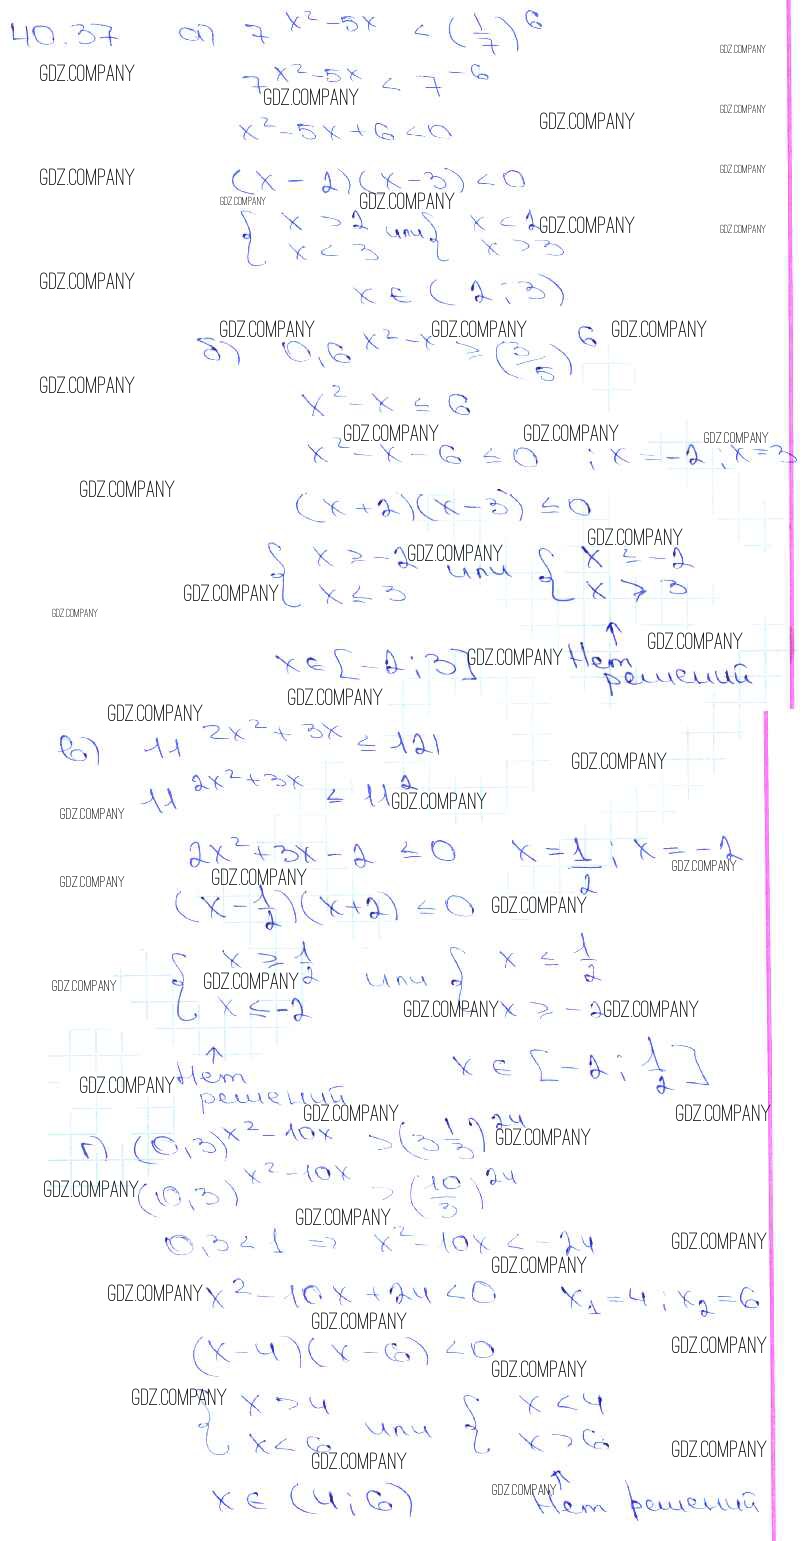 40.37 а) 7^(x²-5x) < (1/7)^6
7^(x²-5x) < 7^(-6)
x²-5x+6<0
(x-2)(x-3)<0
{ x>2 или { x<2
x<3 x>3
x∈(2;3)
б) 0,6^(x²-x) ≥ (3/5)^6
x²-x ≤ 6
x²-x-6 ≤ 0 ; x=-2; x=3
(x+2)(x-3) ≤ 0
{ x ≥ -2 или { x ≤ -2
x ≤ 3 x ≥ 3
↑
x∈[-2;3] Нет
решений
в) 11^(2x²+3x) ≤ 121
11^(2x²+3x) ≤ 11²
2x²+3x-2 ≤ 0 x=1/2; x=-2
(x-1/2)(x+2) ≤ 0
{ x ≥ 1/2 или { x ≤ 1/2
x ≤ -2 x ≥ -2
↑
Нет x∈[-2; 1/2]
решений
г) (0,3)^(x²-10x) > (3 1/3)^24
(0,3)^(x²-10x) > (10/3)^24
0,3<1 ⇒ x²-10x < -24
x²-10x+24<0 x₁=4; x₂=6
(x-4)(x-6)<0
{ x>4 или { x<4
x<6 x>6
↑
x∈(4;6) Нет решений
GDZ.COMPANY